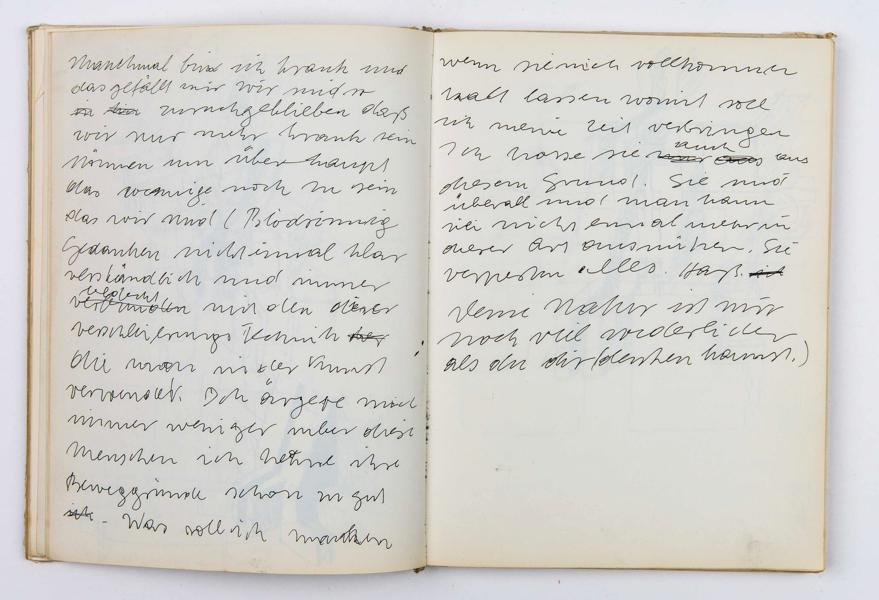 Manchmal bin ich krank und
das gefällt mir wir sind so
zurückgeblieben daß
wir nur mehr krank sein
können um überhaupt
das wenige noch zu sein
das wir sind (Blödsinnig
Gedanken nicht einmal klar
verständlich und immer
verbunden mit den dieser
verschleierungs Technik
die man in der Kunst
verwendet. Ich ärgere mich
immer weniger über diese
Menschen ich kenne ihre
Beweggründe schon zu gut
ich. Was soll ich machen
wenn sie mich vollkommen
kalt lassen womit soll
ich meine Zeit verbringen
Ich hasse sie auch aus
diesem Grund. Sie sind
überall und man kann
sie nicht einmal mehr in
dieser Art ausnützen. Sie
versperrn alles. Haß.
deine Natur ist mir
noch viel widerlicher
als du dir denken kannst.)